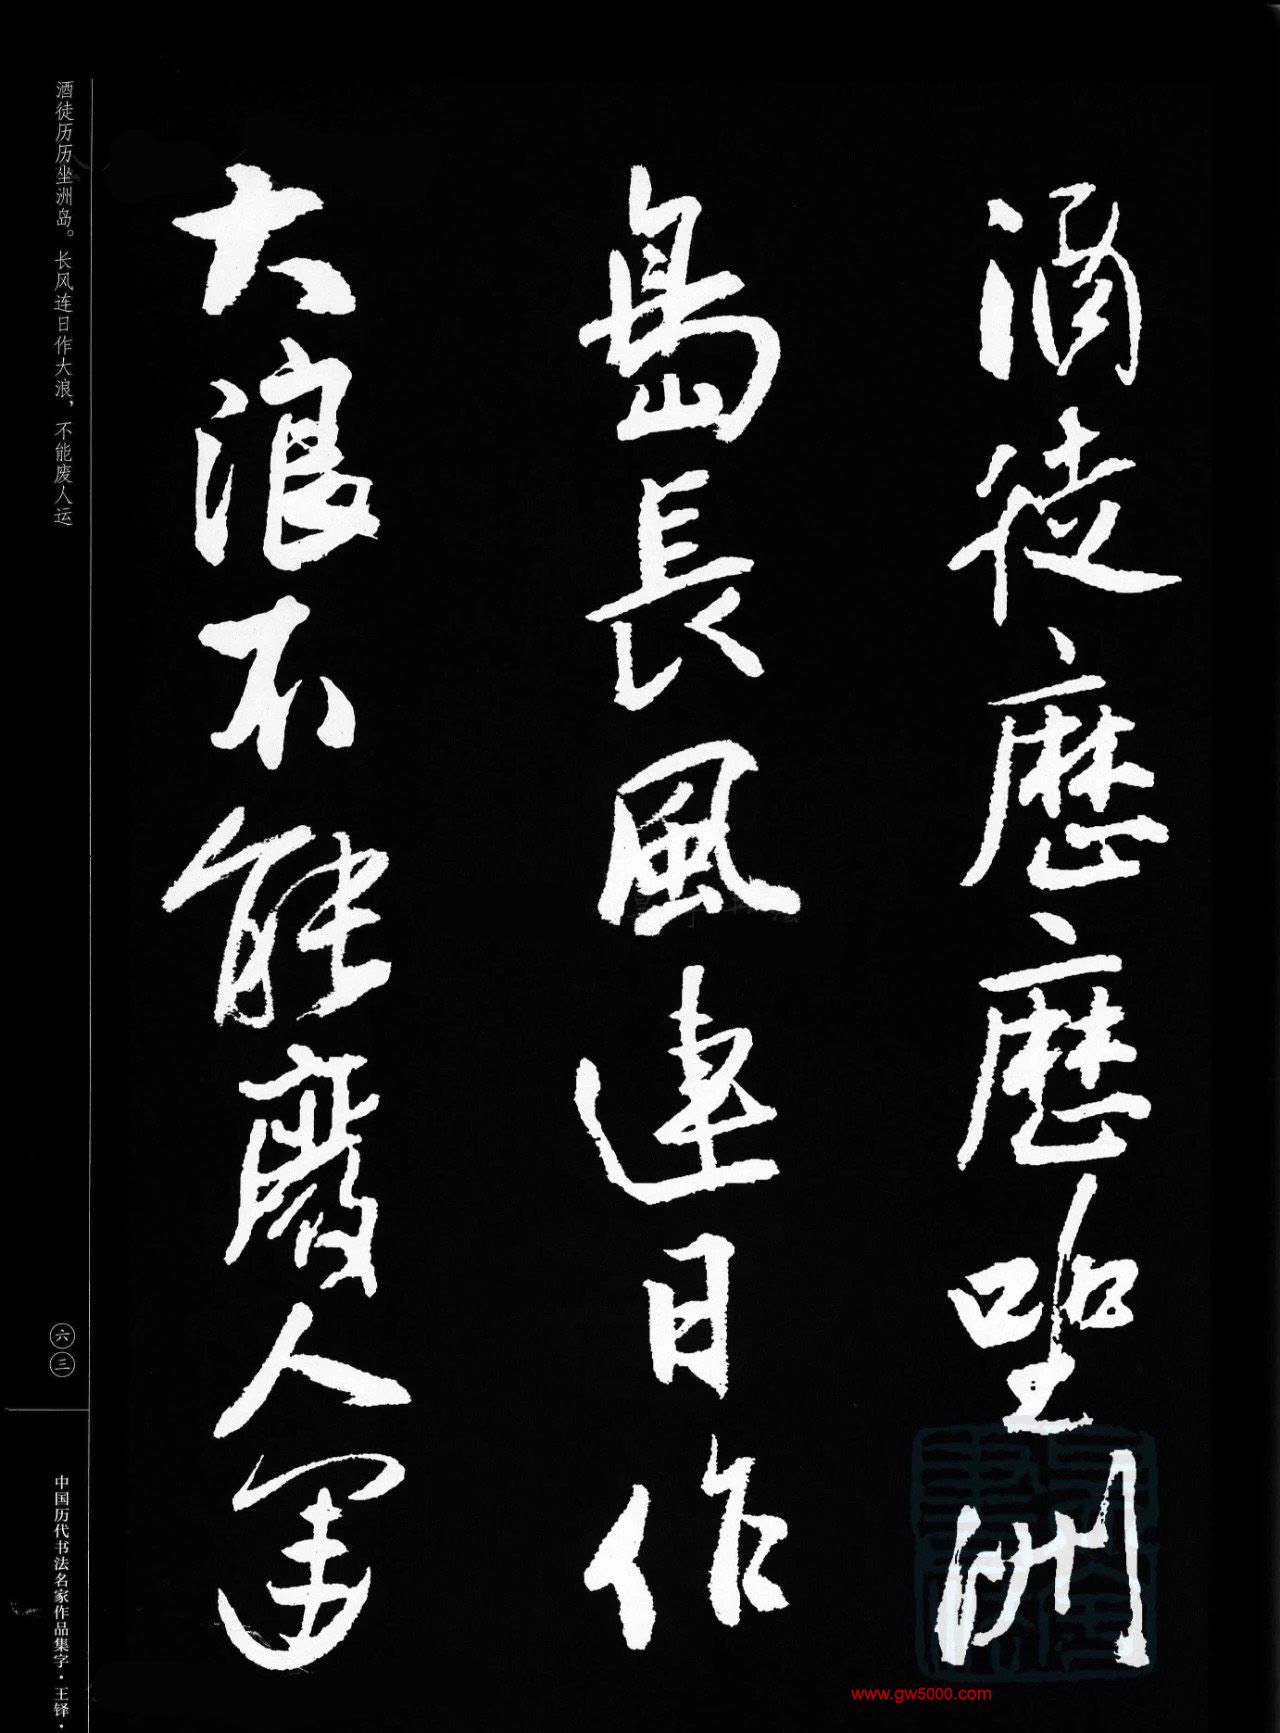 酒徒歷歷坐洲
島長風連日作
大浪不能廢人運
酒徒历历坐洲岛。长风连日作大浪，不能废人运
六三
中国历代书法名家作品集字·王铎·
www.gw5000.com